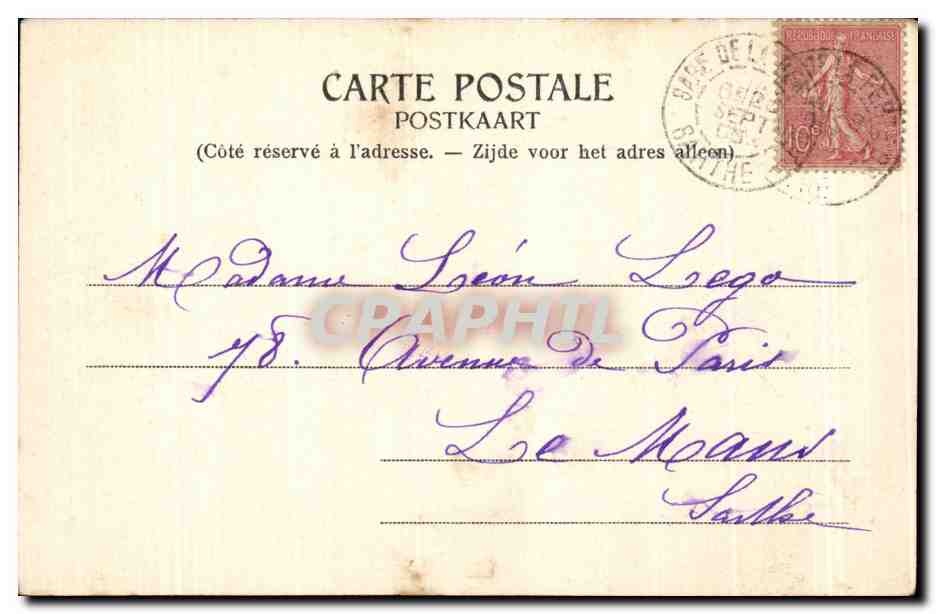 CARTE POSTALE
POSTKAART
(Côté réservé à l'adresse. — Zijde voor het adres alleen)
REPUBLIQUE FRANÇAISE
10c
GARE DE LA
SEPT
SARTHE
Madame Léon Lego
78. Avenue de Paris
Le Mans
Sarthe
CPAPHIL